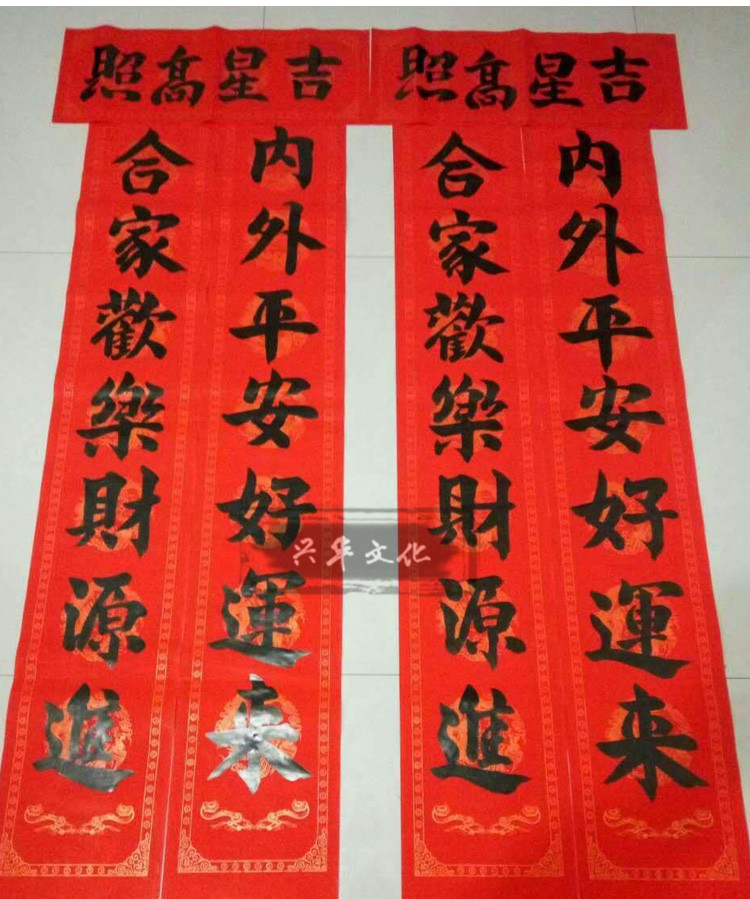 吉星髙照
内外平安好運来
合家歡樂財源進
吉星髙照
内外平安好運来
合家歡樂財源進
兴华文化